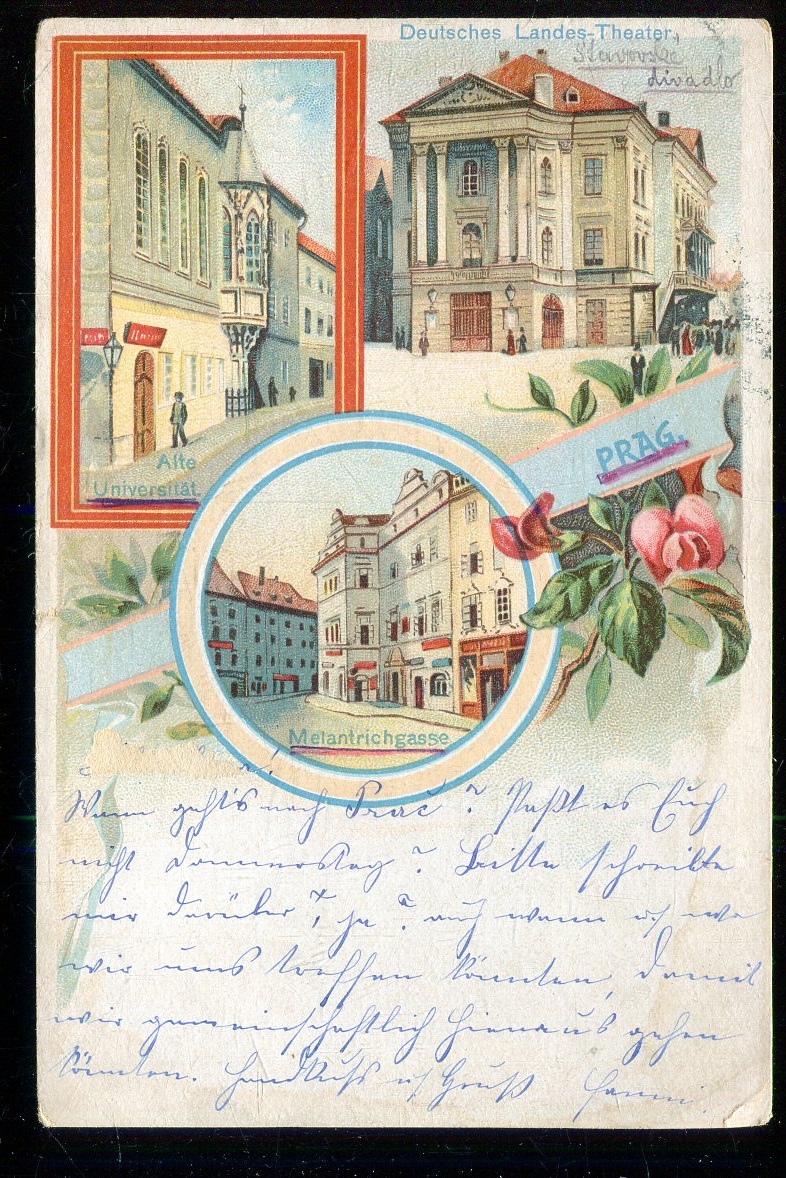 Deutsches Landes-Theater,
Stavovské
divadlo
Alte
Universität.
PRAG.
Melantrichgasse
Wann geht's nach Prac ? Paßt es Euch
nicht Donnerstag ? Bitte schreibte
mir darüber, ja ? auch wann u wo
wir uns treffen könnten, damit
wir gemeinschaftlich hinaus gehen
könnten. Handkuß u Gruß Fanni.